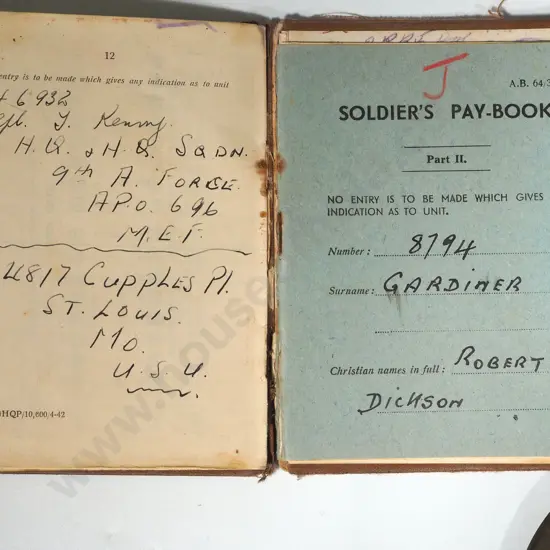 12
entry is to be made which gives any indication as to unit
6932
Kenny.
H.Q. & H.Q. SQDN.
9th A. FORCE.
A.P.O. 696
M.E.F.
4817 CUPPLES Pl.
ST. LOUIS.
MO.
U.S.A.
HQP/10,600/4-42
J
A.B. 64/3
SOLDIER'S PAY-BOOK
Part II.
NO ENTRY IS TO BE MADE WHICH GIVES
INDICATION AS TO UNIT.
Number: 8794
Surname: GARDINER
Christian names in full: ROBERT
DICKSON